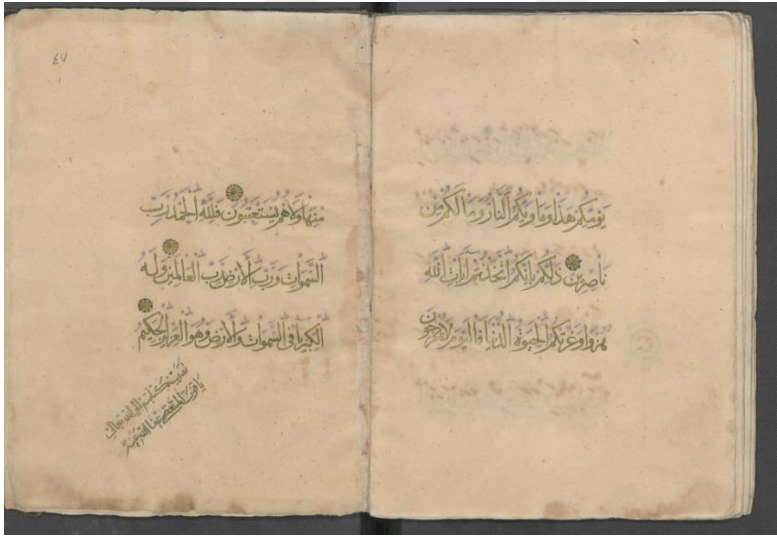 يومكم هذا ومأويكم النار وما لكم من
ناصرين ذلكم بانكم اتخذتم ايات الله
هزوا وغرتكم الحيوة الدنيا فاليوم لا يخرجون
٤٧
منها ولا هم يستعتبون فلله الحمد رب
السموات ورب الارض رب العالمين وله
الكبرياء في السموات والارض وهو العزيز الحكيم
الله تعالى
ياقوت المستعصمي عفا الله عنه